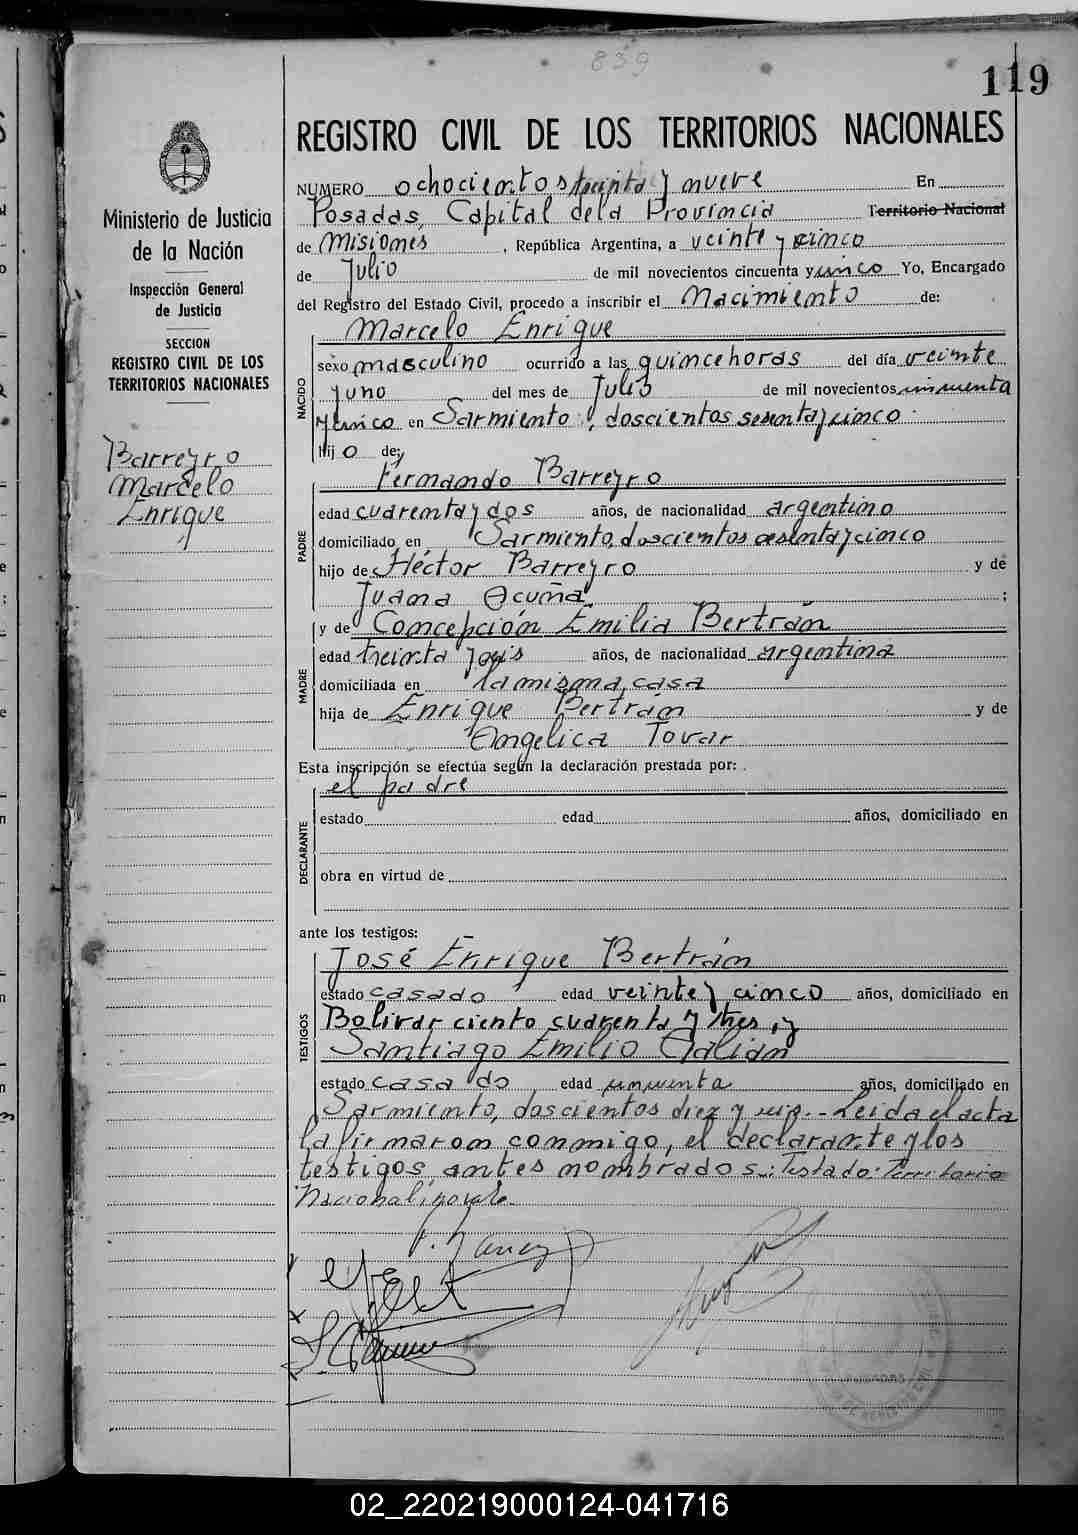 839
119
REGISTRO CIVIL DE LOS TERRITORIOS NACIONALES
Ministerio de Justicia
de la Nación
Inspección General
de Justicia
SECCION
REGISTRO CIVIL DE LOS
TERRITORIOS NACIONALES
Barreyro
Marcelo
Enrique
NUMERO ochocientos treinta y nueve En
Posadas, Capital de la Provincia Territorio Nacional
de Misiones, República Argentina, a veinte y cinco
de Julio de mil novecientos cincuenta y cinco Yo, Encargado
del Registro del Estado Civil, procedo a inscribir el Nacimiento de:
NACIDO
Marcelo Enrique
sexo masculino ocurrido a las quince horas del día veinte
y uno del mes de Julio de mil novecientos cincuenta
y cinco en Sarmiento, doscientos sesenta y cinco
hijo de;
PADRE
Fernando Barreyro
edad cuarenta y dos años, de nacionalidad argentino
domiciliado en Sarmiento, doscientos sesenta y cinco
hijo de Héctor Barreyro y de
Juana Acuña ;
MADRE
y de Concepción Emilia Bertrán
edad treinta y seis años, de nacionalidad argentina
domiciliada en la misma casa
hija de Enrique Bertrán y de
Angelica Tovar
Esta inscripción se efectúa según la declaración prestada por:
DECLARANTE
el padre
estado edad años, domiciliado en
obra en virtud de
ante los testigos:
TESTIGOS
José Enrique Bertrán
estado casado edad veinte y cinco años, domiciliado en
Bolivar ciento cuarenta y tres, y
Santiago Emilio Galian
estado casado edad cincuenta años, domiciliado en
Sarmiento, doscientos diez y seis.- Leida el acta
la firmaron conmigo, el declarante y los
testigos, antes nombrados.: Testado: Territorio
Nacional: no vale.
02_220219000124-041716